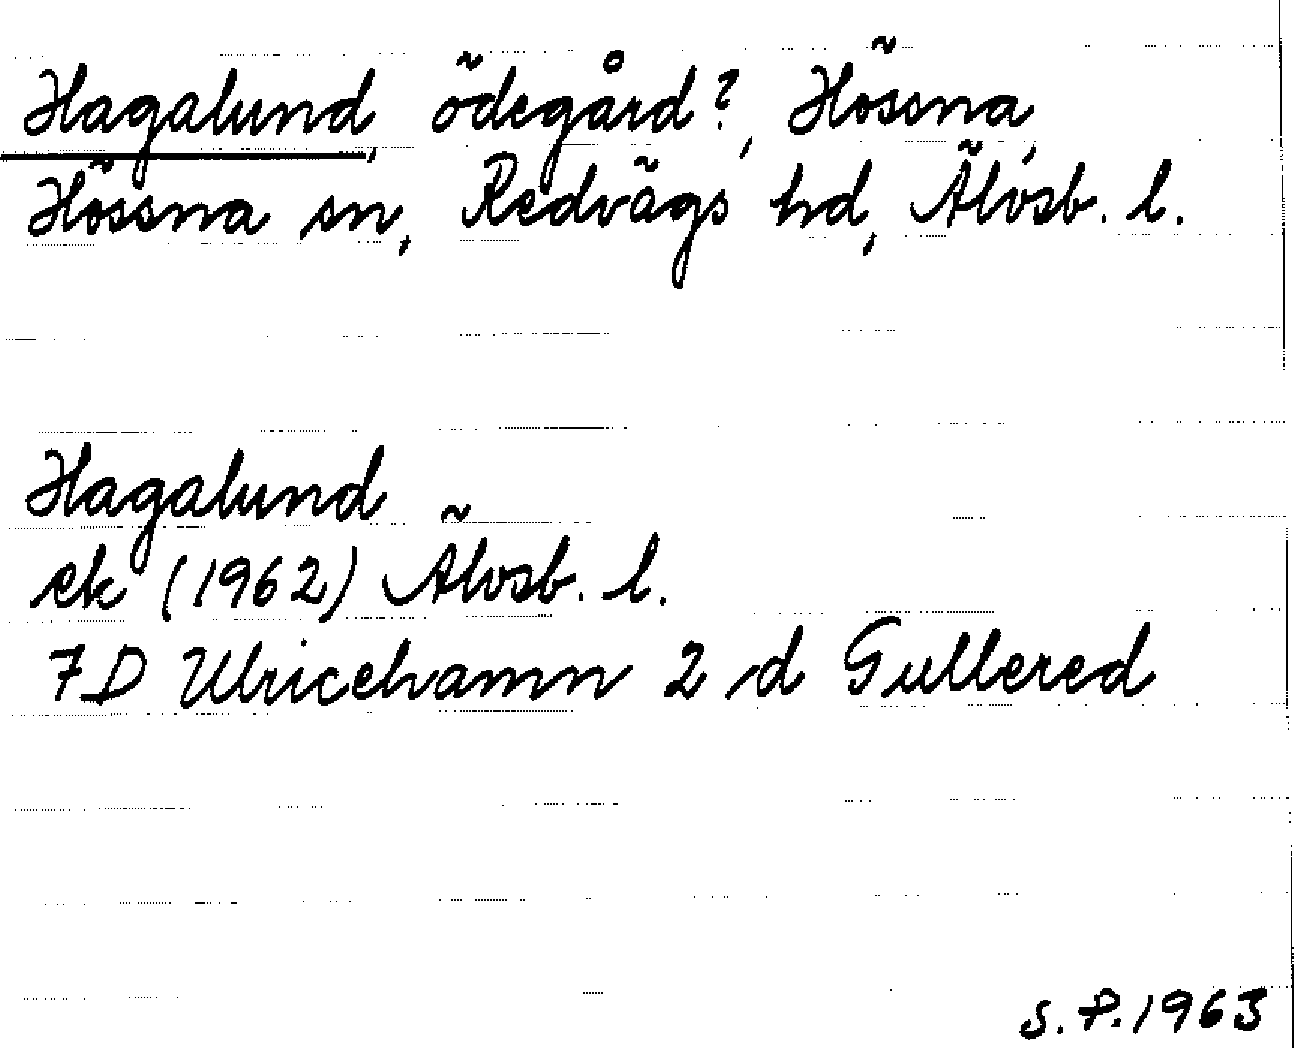 Hagalund, ödegård?, Hössna,
Hössna sn, Redvägs hd, Älvsb. l.
Hagalund
ek (1962) Älvsb. l.
7D Ulricehamn 2 d Gullered
S.P. 1963